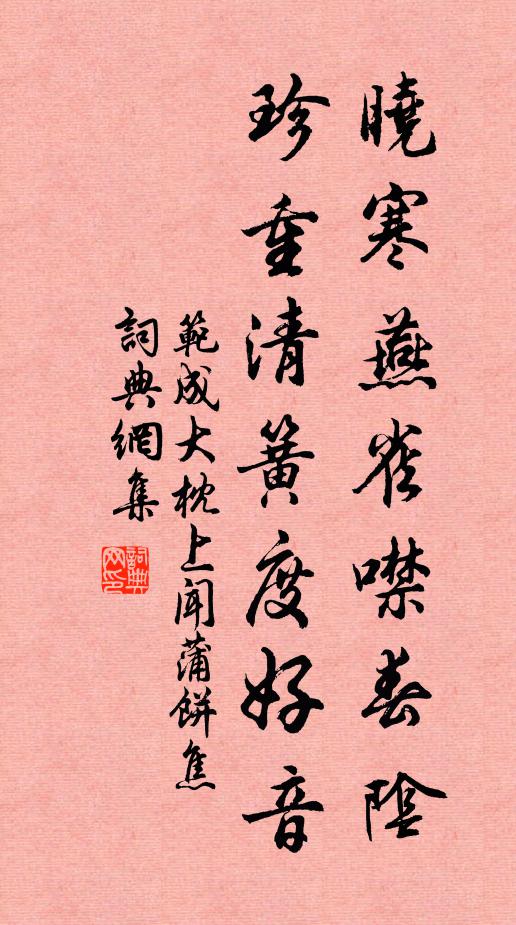 曉寒燕雀噤春陰
珍重清簧度好音
範成大枕上聞蒲餅焦
詞典網集
詞典网印